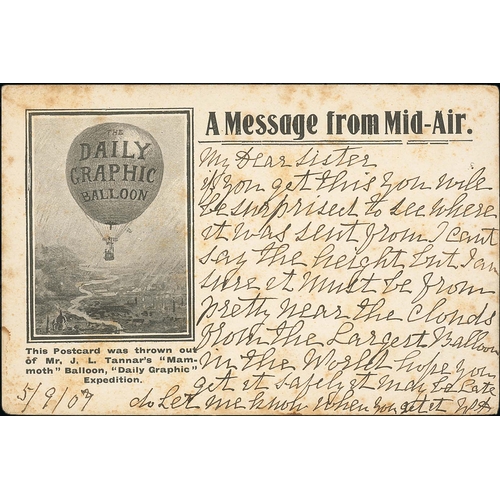 A Message from Mid-Air.
THE
DAILY
GRAPHIC
BALLOON
My Dear Sister
if you get this you will
be surprised to see where
it was sent from I cant
say the height but I am
sure it must be from
pretty near the clouds
from the Largest Balloon
in the World hope you
get it safely it may be Late
do Let me know when you get it
This Postcard was thrown out
of Mr. J. L. Tannar's "Mam-
moth" Balloon, "Daily Graphic"
Expedition.
5/9/07